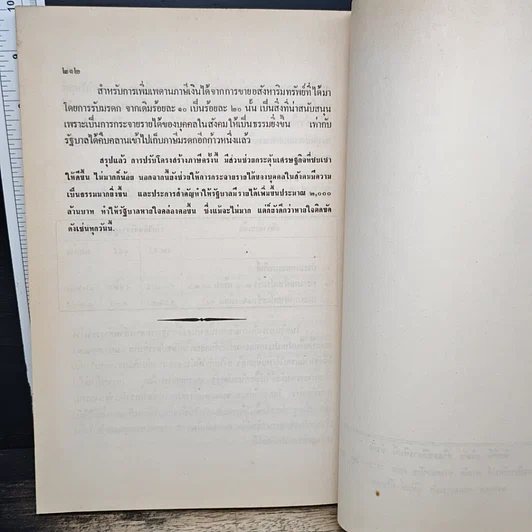 ๒๑๒
สำหรับการเพิ่มเพดานภาษีเงินได้จากการขายอสังหาริมทรัพย์ที่ได้มา
โดยการรับมรดก จากเดิมร้อยละ ๑๐ เป็นร้อยละ ๒๐ นั้น เป็นสิ่งที่น่าสนับสนุน
เพราะเป็นการกระจายรายได้ของบุคคลในสังคมให้เป็นธรรมยิ่งขึ้น เท่ากับ
รัฐบาลได้คืบคลานเข้าไปเก็บภาษีมรดกอีกก้าวหนึ่งแล้ว
สรุปแล้ว การปรับโครงสร้างภาษีครั้งนี้ มีส่วนช่วยกระตุ้นเศรษฐกิจที่ซบเซา
ให้ดีขึ้น ไม่มากก็น้อย นอกจากนี้ยังช่วยให้การกระจายรายได้ของบุคคลในสังคมมีความ
เป็นธรรมมากยิ่งขึ้น และประการสำคัญทำให้รัฐบาลมีรายได้เพิ่มขึ้นประมาณ ๒,๐๐๐
ล้านบาท ทำให้รัฐบาลหายใจคล่องคอขึ้น ซึ่งแม้จะไม่มาก แต่ก็ยังดีกว่าหายใจติดขัด
ดังเช่นทุกวันนี้.